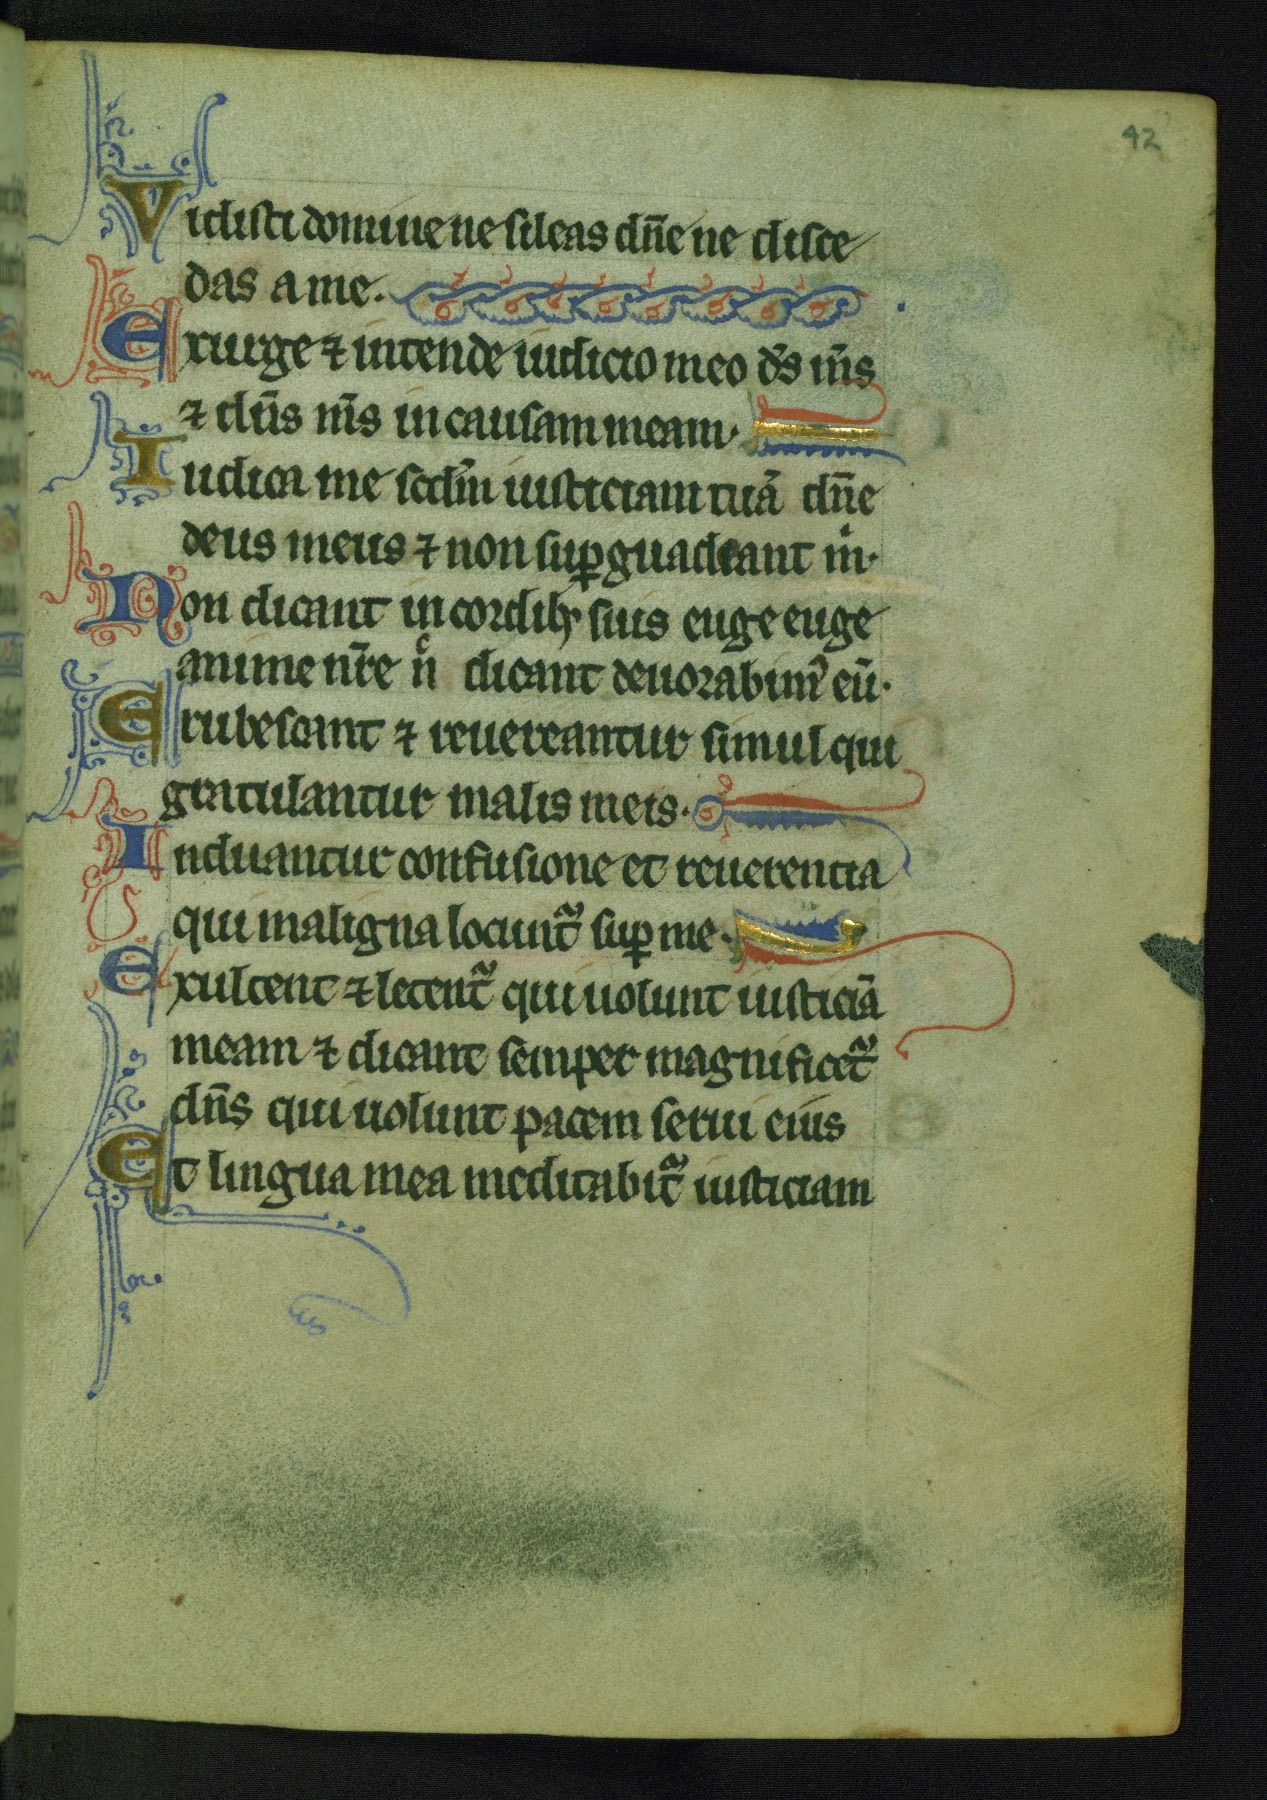 42
Vidisti domine ne sileas dn̄e ne disce
das a me.
Exurge ⁊ intende iudicio meo ds̄ ms̄
⁊ dn̄s ms̄ in causam meam.
Iudica me scd̄m iusticiam tuā dn̄e
deus meus ⁊ non suꝑguadeant m̄.
Non dicant in cordibꝫ suis euge euge
anime nr̄e n̄ dicant deuorabimꝰ eū.
Erubescant ⁊ reuereantur simul qui
gratulantur malis meis.
Induantur confusione et reuerencia
qui maligna locunt᷑ suꝑ me.
Exultent ⁊ letent᷑ qui uolunt iusticiā
meam ⁊ dicant semper magnificet᷑
dn̄s qui uolunt pacem serui eius
Et lingua mea meditabit᷑ iusticiam